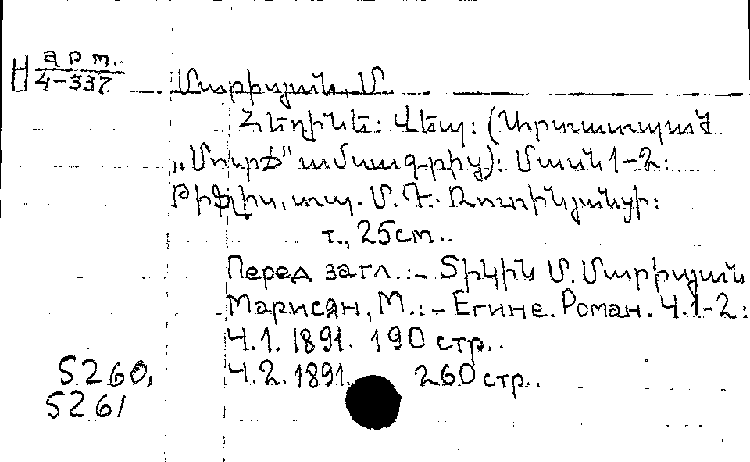 арт.
H 4-337
Մարիսյան, Մ.
Հեղինե: Վեպ: (Արտատպած
„Մուրճ" ամսագրից): Մասն 1-2:
Թիֆլիս, տպ. Մ. Դ. Ռոտինյանցի:
т., 25cm..
Перед загл.:- Տիկին Մ. Մարիսյան
Марисян, М.:- Егине. Роман. Ч.1-2:
Ч.1. 1891. 190 стр..
5260, Ч.2. 1891. 260 стр..
5261